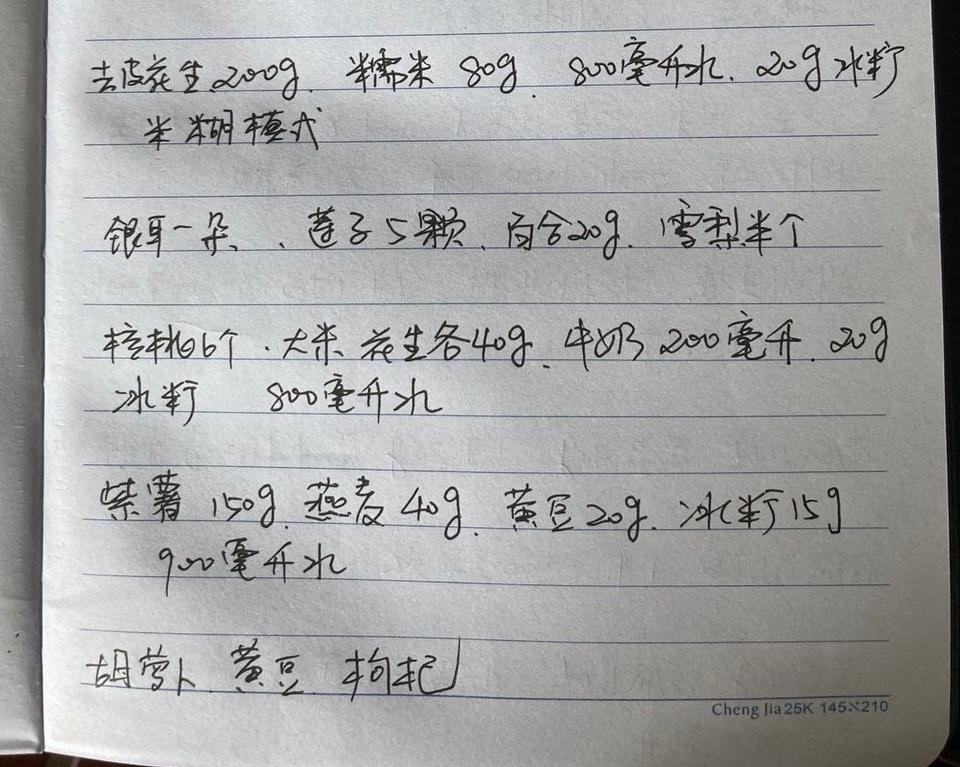 去皮花生200g、糯米80g、800毫升水、20g冰籽
米糊模式
银耳一朵、莲子5颗、百合20g、雪梨半个
核桃6个、大米、花生各40g、牛奶200毫升、20g
冰籽 800毫升水
紫薯150g、燕麦40g、黄豆20g、冰籽15g
900毫升水
胡萝卜、黄豆、枸杞
Cheng Jia 25K 145×210